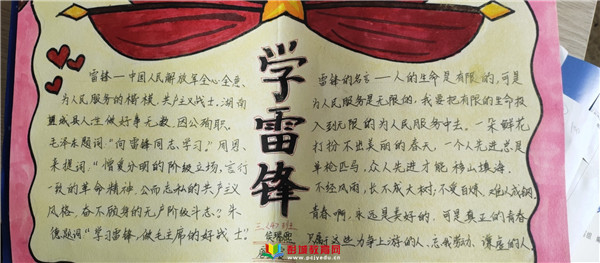 雷锋—中国人民解放军全心全意、
为人民服务的楷模,共产主义战士,湖南
望城县人,生做好事无数,因公殉职。
毛泽东题词:"向雷锋同志学习。"周恩
来提词:"憎爱分明的阶级立场,言行
一致的革命精神,公而忘私的共产主义
风格,奋不顾身的无产阶级斗志。"朱
德题词"学习雷锋,做毛主席的好战士"。
学雷锋
三(4)班
雷锋的名言—人的生命是有限的,可是
为人民服务是无限的,我要把有限的生命投
入到无限的为人民服务中去。一朵鲜花
打扮不出美丽的春天,一个人先进总是
单枪匹马,众人先进才能移山填海。
不经风雨,长不成大树;不受百炼,难以成钢。
青春啊,永远是美好的,可是真正的青春
只属于这些力争上游的人,忘我劳动、谦虚的人
彭城教育网
www.pcjyedu.cn